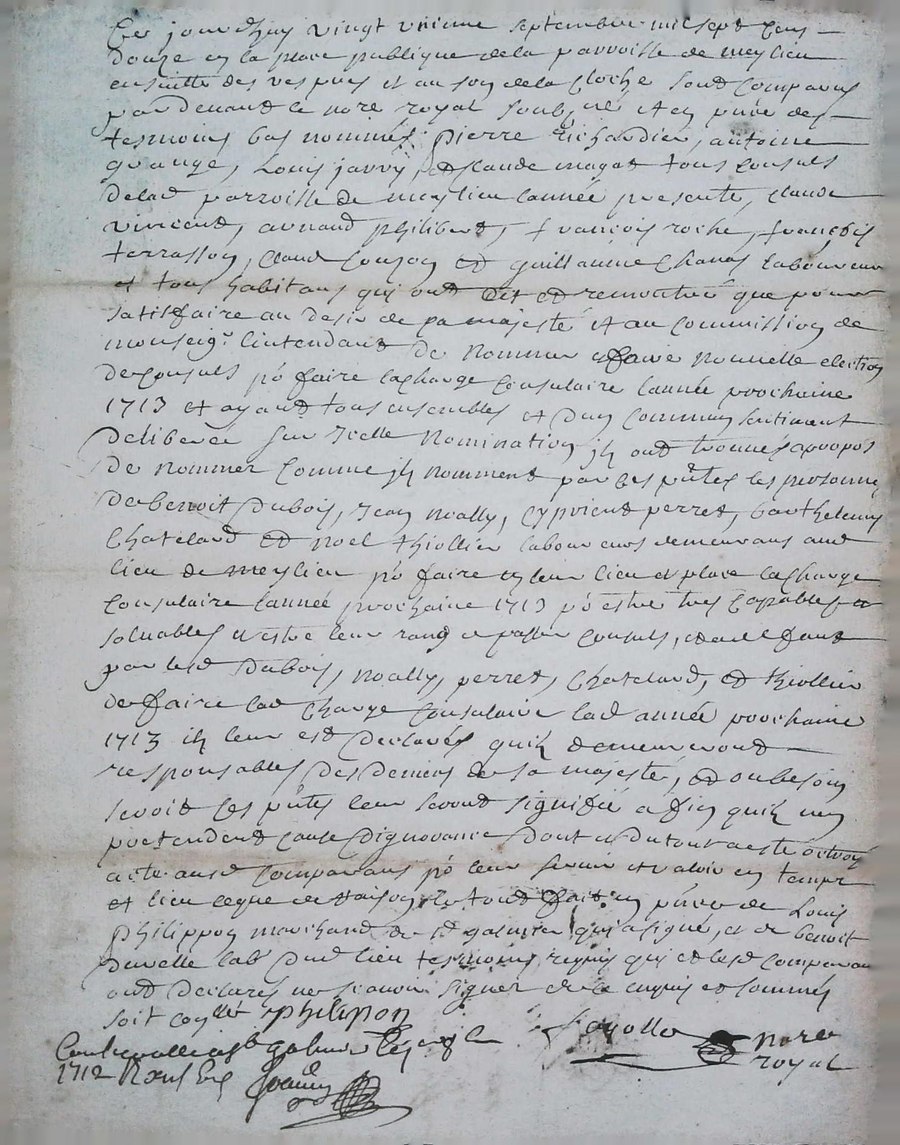 Ce jourdhuy vingt unieme septembre mil sept cens
douze en la place publique de la parroisse de meylieu
ensuitte des vespres et au son de la cloche sont comparus
pardevant le nore royal soubzné et en pñce des
tesmoins bas nommés pierre Richardier, antoine
grange, Louis javry, et claude magat tous consuls
delad parroisse de meylieu lannée presente, claude
vincent, arnaud philibert, françois roche, françois
terrasson, claud couzon et guillaume chanas laboureurs
et tous habitans qui ont dit et remontré que pour
satisfaire au desir de sa majesté et au commission de
monseigr lintendant de nommer et faire nouvelle election
de consuls pr faire la charge consulaire lannée prochaine
1713 et ayant tous ensembles et dun commun sentiment
deliberés sur Icelle nomination ils ont trouvés apropos
de nommer comme ils nomment par ces pñtes les personnes
de benoit dubois, Jean noally, cyprient perret, barthelemy
chatelard et noel thiollier laboureurs demeurans aud
lieu de meylieu pr faire en leur lieu et place la charge
consulaire lannée prochaine 1713 pr estre tres capables et
solvables et estre leur rang a passer consuls, et a deffaut
par lesd dubois, noally, perret, chatelard, et thiollier
de faire lad charge consulaire lad année prochaine
1713 ils leur est declarés quils demeureront
responsables des deniers de sa majesté, et ou besoin
seroit ces pñtes leur seront signifié afin quils nen
pretendent cause dignorance dont et du tout a esté octroyé
acte ausd comparans pr leur servir et valoir en temps
et lieu ce que de raison le tout fait en pñce de Louis
philippon marchand de st galmier qui a signé, et de benoit
duvelle labr dud lieu tesmoins requis qui et lesd comparans
ont declarés ne scavoir signer de ce enquis et sommés
soit conllé philipon
Fayolle nore
royal
galmier
1712 Receu